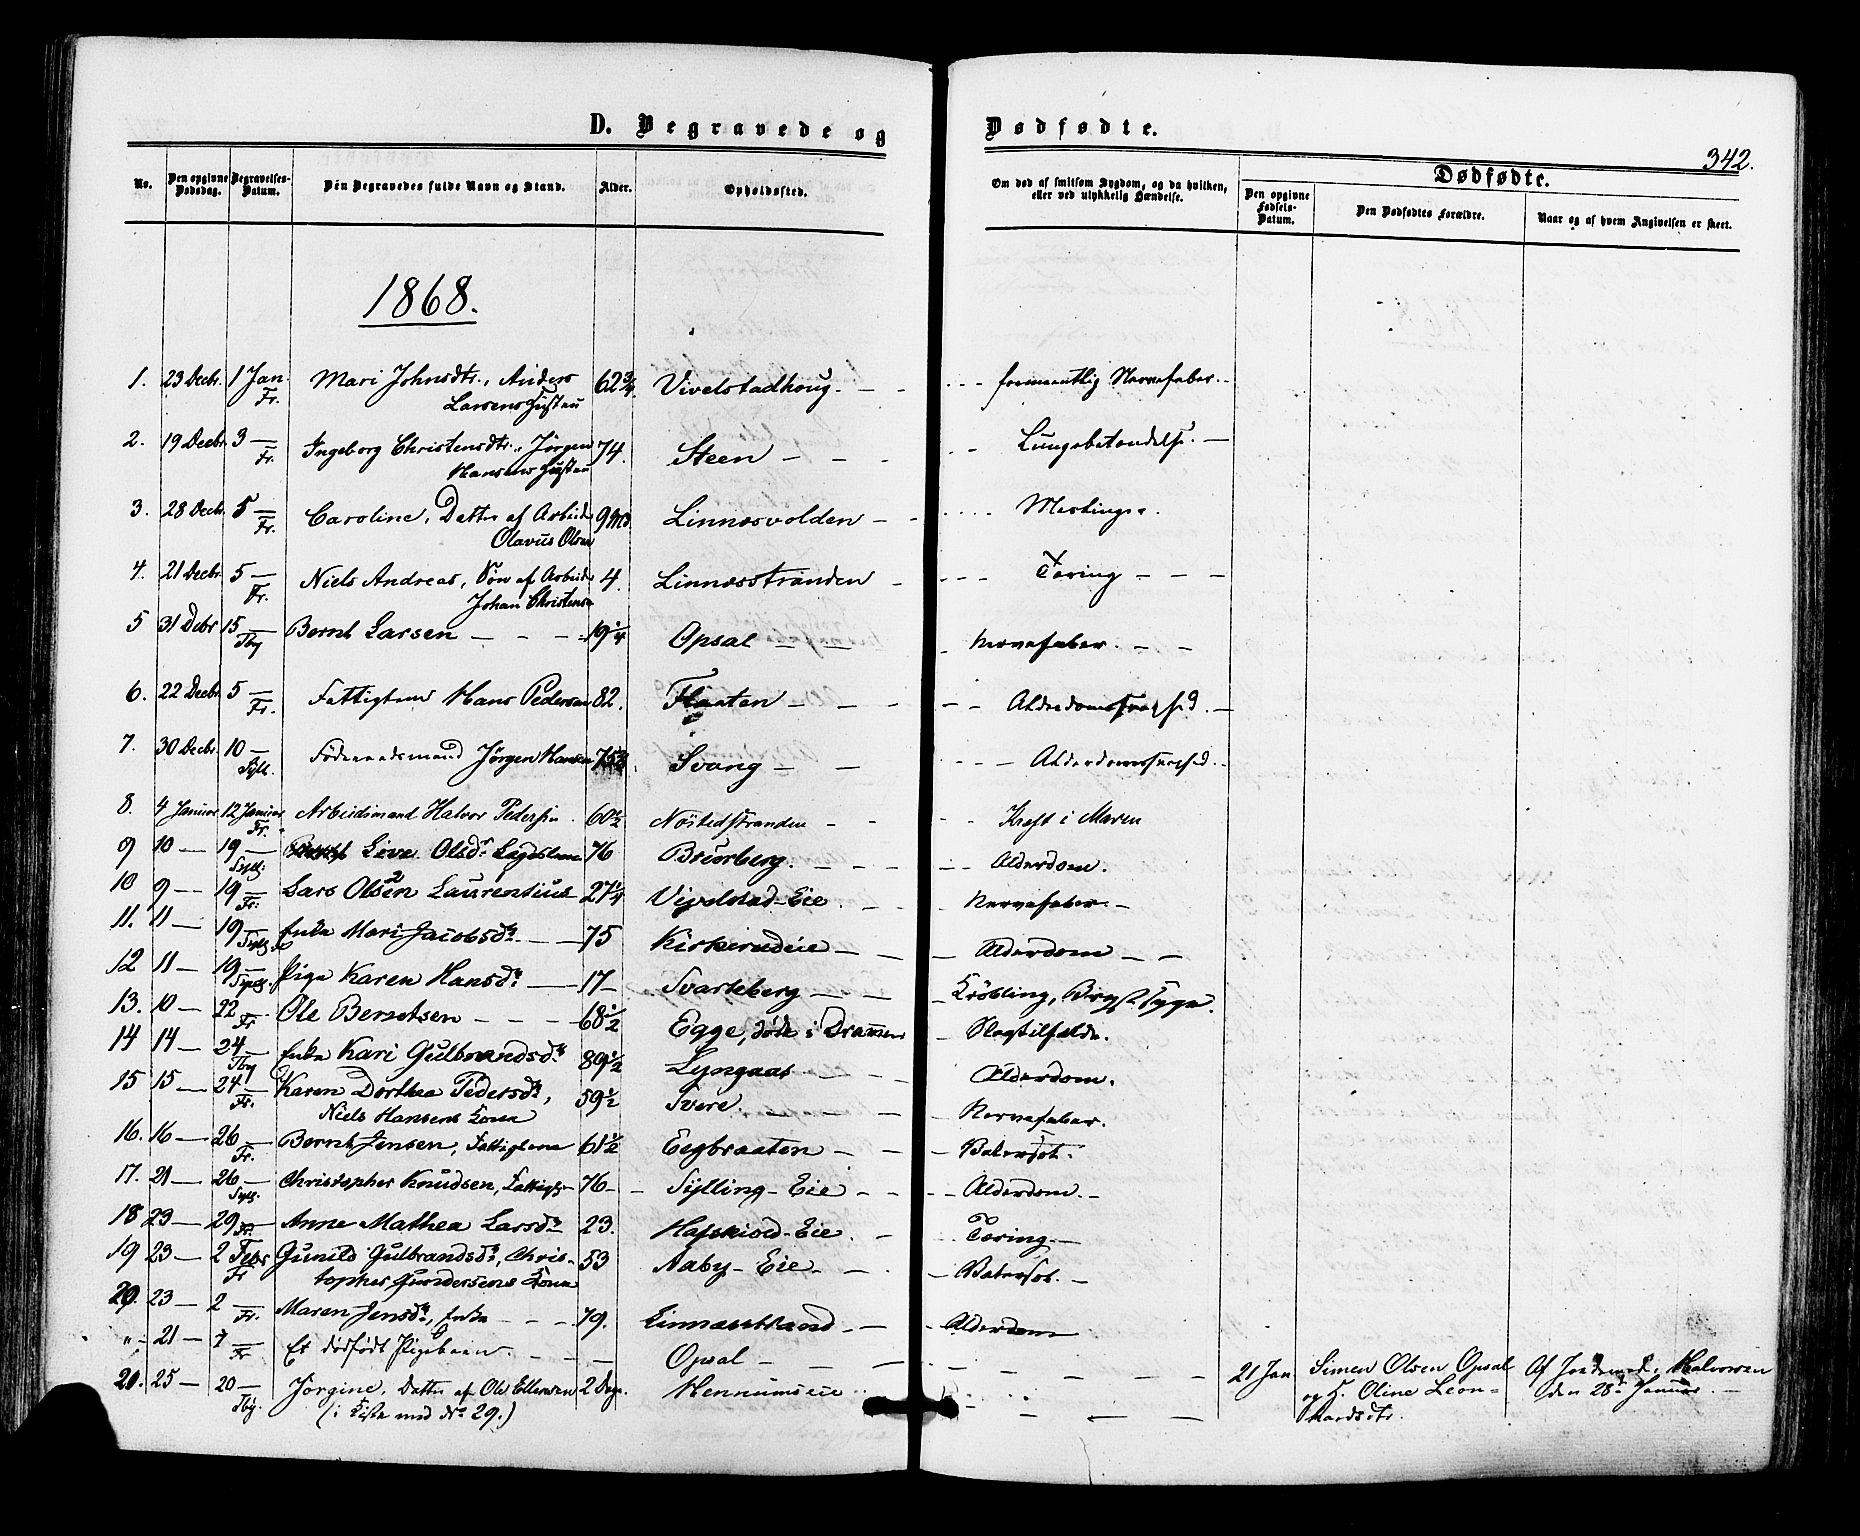 D. Begravede og Dødfødte.
342.
No. Den opgivne Dødsdag. Begravelses-Datum. Den Begravedes fulde Navn og Stand. Alder. Opholdssted. Om død af smitsom Sygdom, og da hvilken, eller ved ulykkelig Hændelse. Dødfødte. Den opgivne Fødsels-Datum. Den Dødfødtes Forældre. Naar og af hvem Angivelsen er skeet.
1868.
1. 23 Decbr. 1 Jan. Fr. Mari Johnsdtr., Anders 62 3/4 Vivelstadhoug. formentlig Nervefeber.
Larsens Hustru
2. 19 Decbr. 3 — Fr. Ingeborg Christensdtr., Jørgen 74. Steen Lungebetændelse.
Hansens Hustru
3. 28 Decbr. 5 — Fr. Caroline, Datter af Arbeider 9 Md. Linnæsvolden Meslinger.
Olavus Olsen
4. 21 Decbr. 5 — Fr. Niels Andreas, Søn af Arbeider 4. Linnæsstranden Tæring
Johan Christensen
5 31 Decbr 15 — Tby Bernt Larsen 19 1/4 Opsal Nervefeber.
6. 22 Decbr. 5 — Fr. Fattiglem Hans Pedersen 82. Flaaten Alderdomssvaghed.
7. 30 Decbr. 10 — Syll. Føderaadsmand Jørgen Hansen 75 Svang Alderdomssvaghed.
8. 4 Januar 12 Januar Fr. Arbeidsmand Halvor Pedersen 60 1/2 Nøstedstranden Kræft i Maven
9 10 — 19 — Syll. Live Olsdr. Lægdslem 76 Bråberg. Alderdom.
10 9 — 19 — Fr. Lars Olsen Laurentius 27 1/4 Vivelstad-Eie Nervefeber.
11. 11 — 19 — Syll. Enke Mari Jacobsdr. 75 Kirkerudeie Alderdom
12 11 — 19 — Syll. Pige Karen Hansdr. 17 Svarteberg Kröbling, Brystsyge.
13. 10 — 22 — Fr Ole Berntsen 68 1/2 Egge, døde i Drammen Slagtilfælde.
14 14 — 24 — Tby Enke Kari Gulbrandsdr. 89 1/2 Lyngaas Alderdom.
15 15 — 24 — Fr. Karen Dorthea Pedersdr., 59 1/2 Svere. Nervefeber.
Niels Hansens Kone
16. 16 — 26 — Fr. Bernt Jensen, Fattiglem 61 1/2 Eegbraaten Vatersot.
17. 21 — 26 — Syll. Christopher Knudsen, Fattigl. 76 Sylling-Eie Alderdom.
18 23 — 29 — Fr. Anne Mathea Larsdr. 23. Hafskiold-Eie Tæring.
19 23 — 2 Febr Fr Gunild Gulbrandsdr., Chris- 53 Aaby-Eie Vatersot.
topher Gundersens Kone
20. 23 — 2 — Fr. Maren Jensdr., Enke 79. Linnæsstrand Alderdom
„ 21 — 7 — Fr Et dødfødt Pigebarn. Opsal 21 Jan Simen Olsen Opsal Af Jordemod. Halvorsen
og K. Oline Leon- den 28de Januar.
hardsdtr.
21. 25 — 20 — Tby. Jørgine, Datter af Ole Ellefsen 2 Dage. Hennumseie
(i Kiste med No 29.)